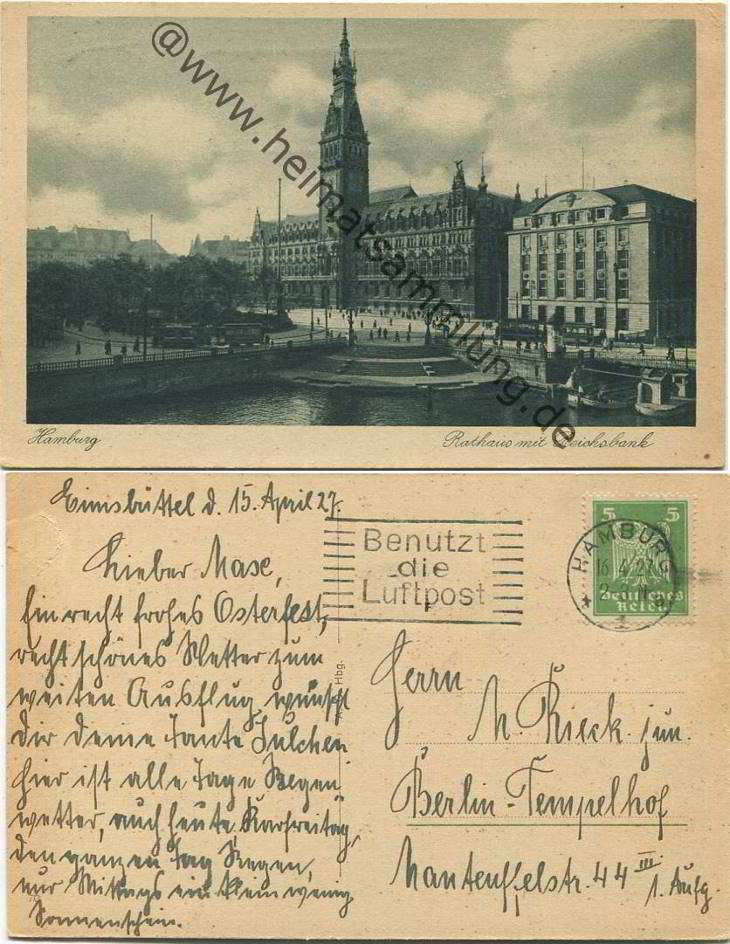 @www.heimatsammlung.de
Hamburg
Rathaus mit Reichsbank
Eimsbüttel d. 15. April 27.
Lieber Mase,
Ein recht frohes Osterfest,
recht schönes Wetter zum
weiten Ausflug, wünscht
Dir deine Tante Julchen
hier ist alle Tage Regen
wetter, auch heute Karfreitag,
den ganzen Tag Regen,
nur Mittags ein klein wenig
Sonnenschein.
Hbg.
Benutzt
die
Luftpost
HAMBURG
16.4.27
1
5 5
Deutsches
Reich
Herrn
M. Rieck jun.
Berlin-Tempelhof
Manteuffelstr. 44 III
1. Aufg.